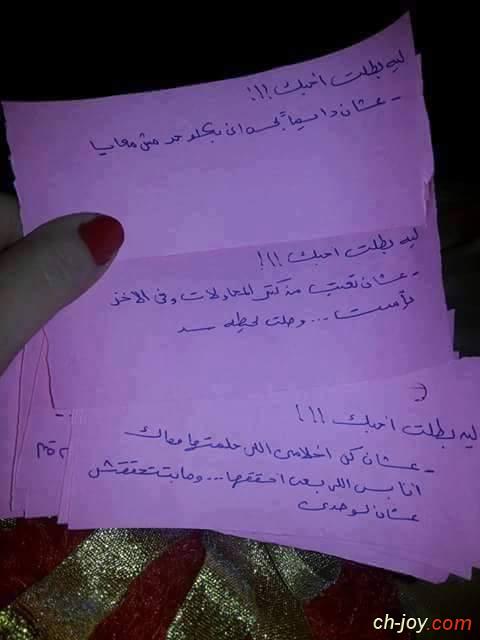 ليه بطلت احبك !!!
- عشان دايماً بحس انى بكلم حد مش معايا
ليه بطلت احبك !!!
- عشان تعبت من كتر المحاولات وفى الاخر
... وصلت لحيطه سد
ليه بطلت احبك !!!
- عشان كل احلامى اللى حلمتها معاك
انا بس اللى بعى احققها ... ومابتتحققش
عشان لوحدى
ch-joy.com